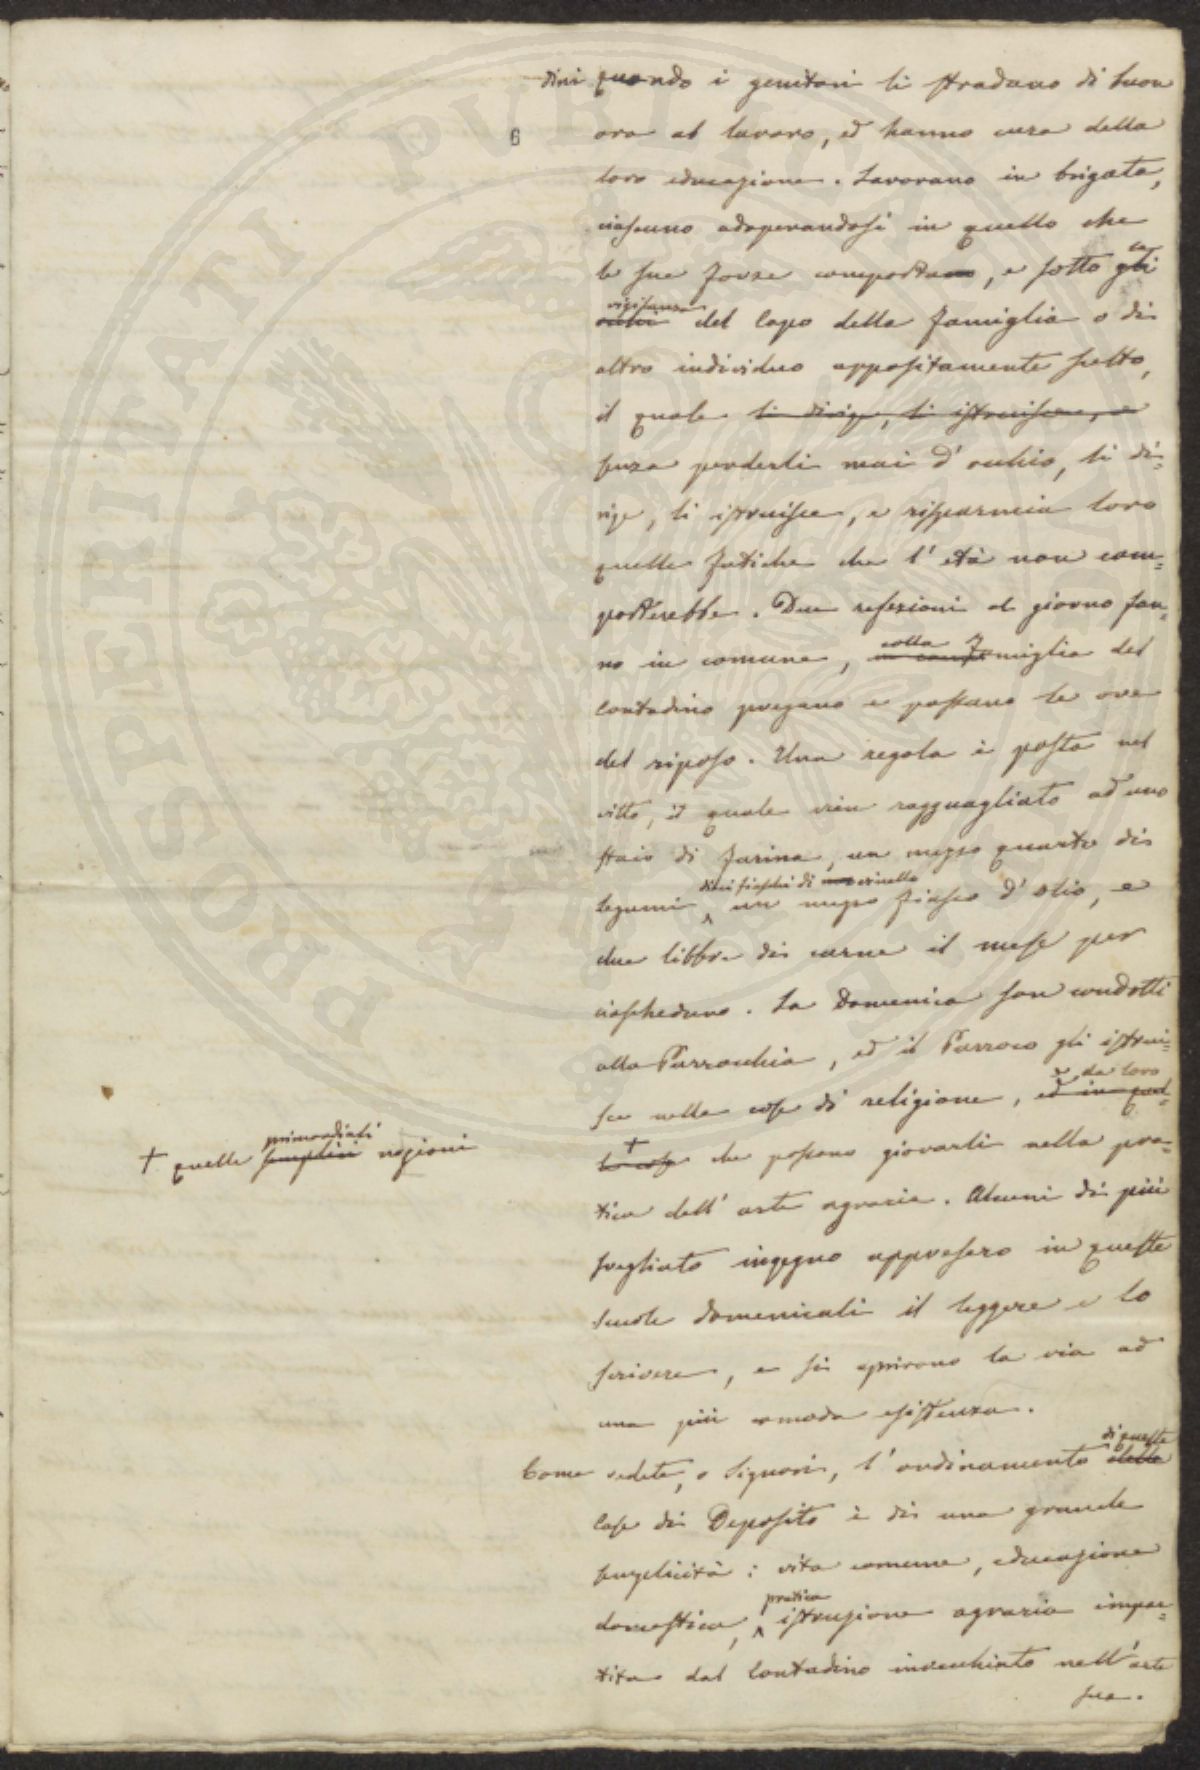 dini quando i genitori li stradano di buon
6
ora al lavoro, ed hanno cura della
loro educazione. Lavorano in brigata,
ciascuno adoperandosi in quello che
le sue forze comportano, e sotto gli la
occhi vigilanza del Capo della famiglia o di
altro individuo appositamente scelto,
il quale li dirige, li istruisce, e
senza perderli mai d'occhio, li di=
rige, li istruisce, e risparmia loro
quelle fatiche che l'età non com=
porterebbe. Due refezioni al giorno fan=
no in comune, colla famiglia del
Contadino pregano e passano le ore
del riposo. Una regola è posta nel
vitto, il quale vien ragguagliato ad uno
staio di farina, un mezzo quarto di
dieci fiaschi di vinello
legumi, un mezzo fiasco d'olio, e
due libbre di carne il mese per
ciascheduno. La Domenica son condotti
alla Parrocchia, ed il Parroco gli istrui=
sce nelle cose di religione, ed in quel= e da loro
+ quelle semplici primordiali nozioni
le cose + che possono giovarli nella pra=
tica dell'arte agraria. Alcuni di più
svegliato ingegno appresero in queste
scuole domenicali il leggere e lo
scrivere, e si aprirono la via ad
una più comoda esistenza.
Come vedete, o Signori, l'ordinamento delle di queste
Case di Deposito è di una grande
semplicità: vita comune, educazione
domestica, pratica istruzione agraria impar=
tita dal Contadino invecchiato nell'arte
sua.
PROSPERITATI PUBLICAE